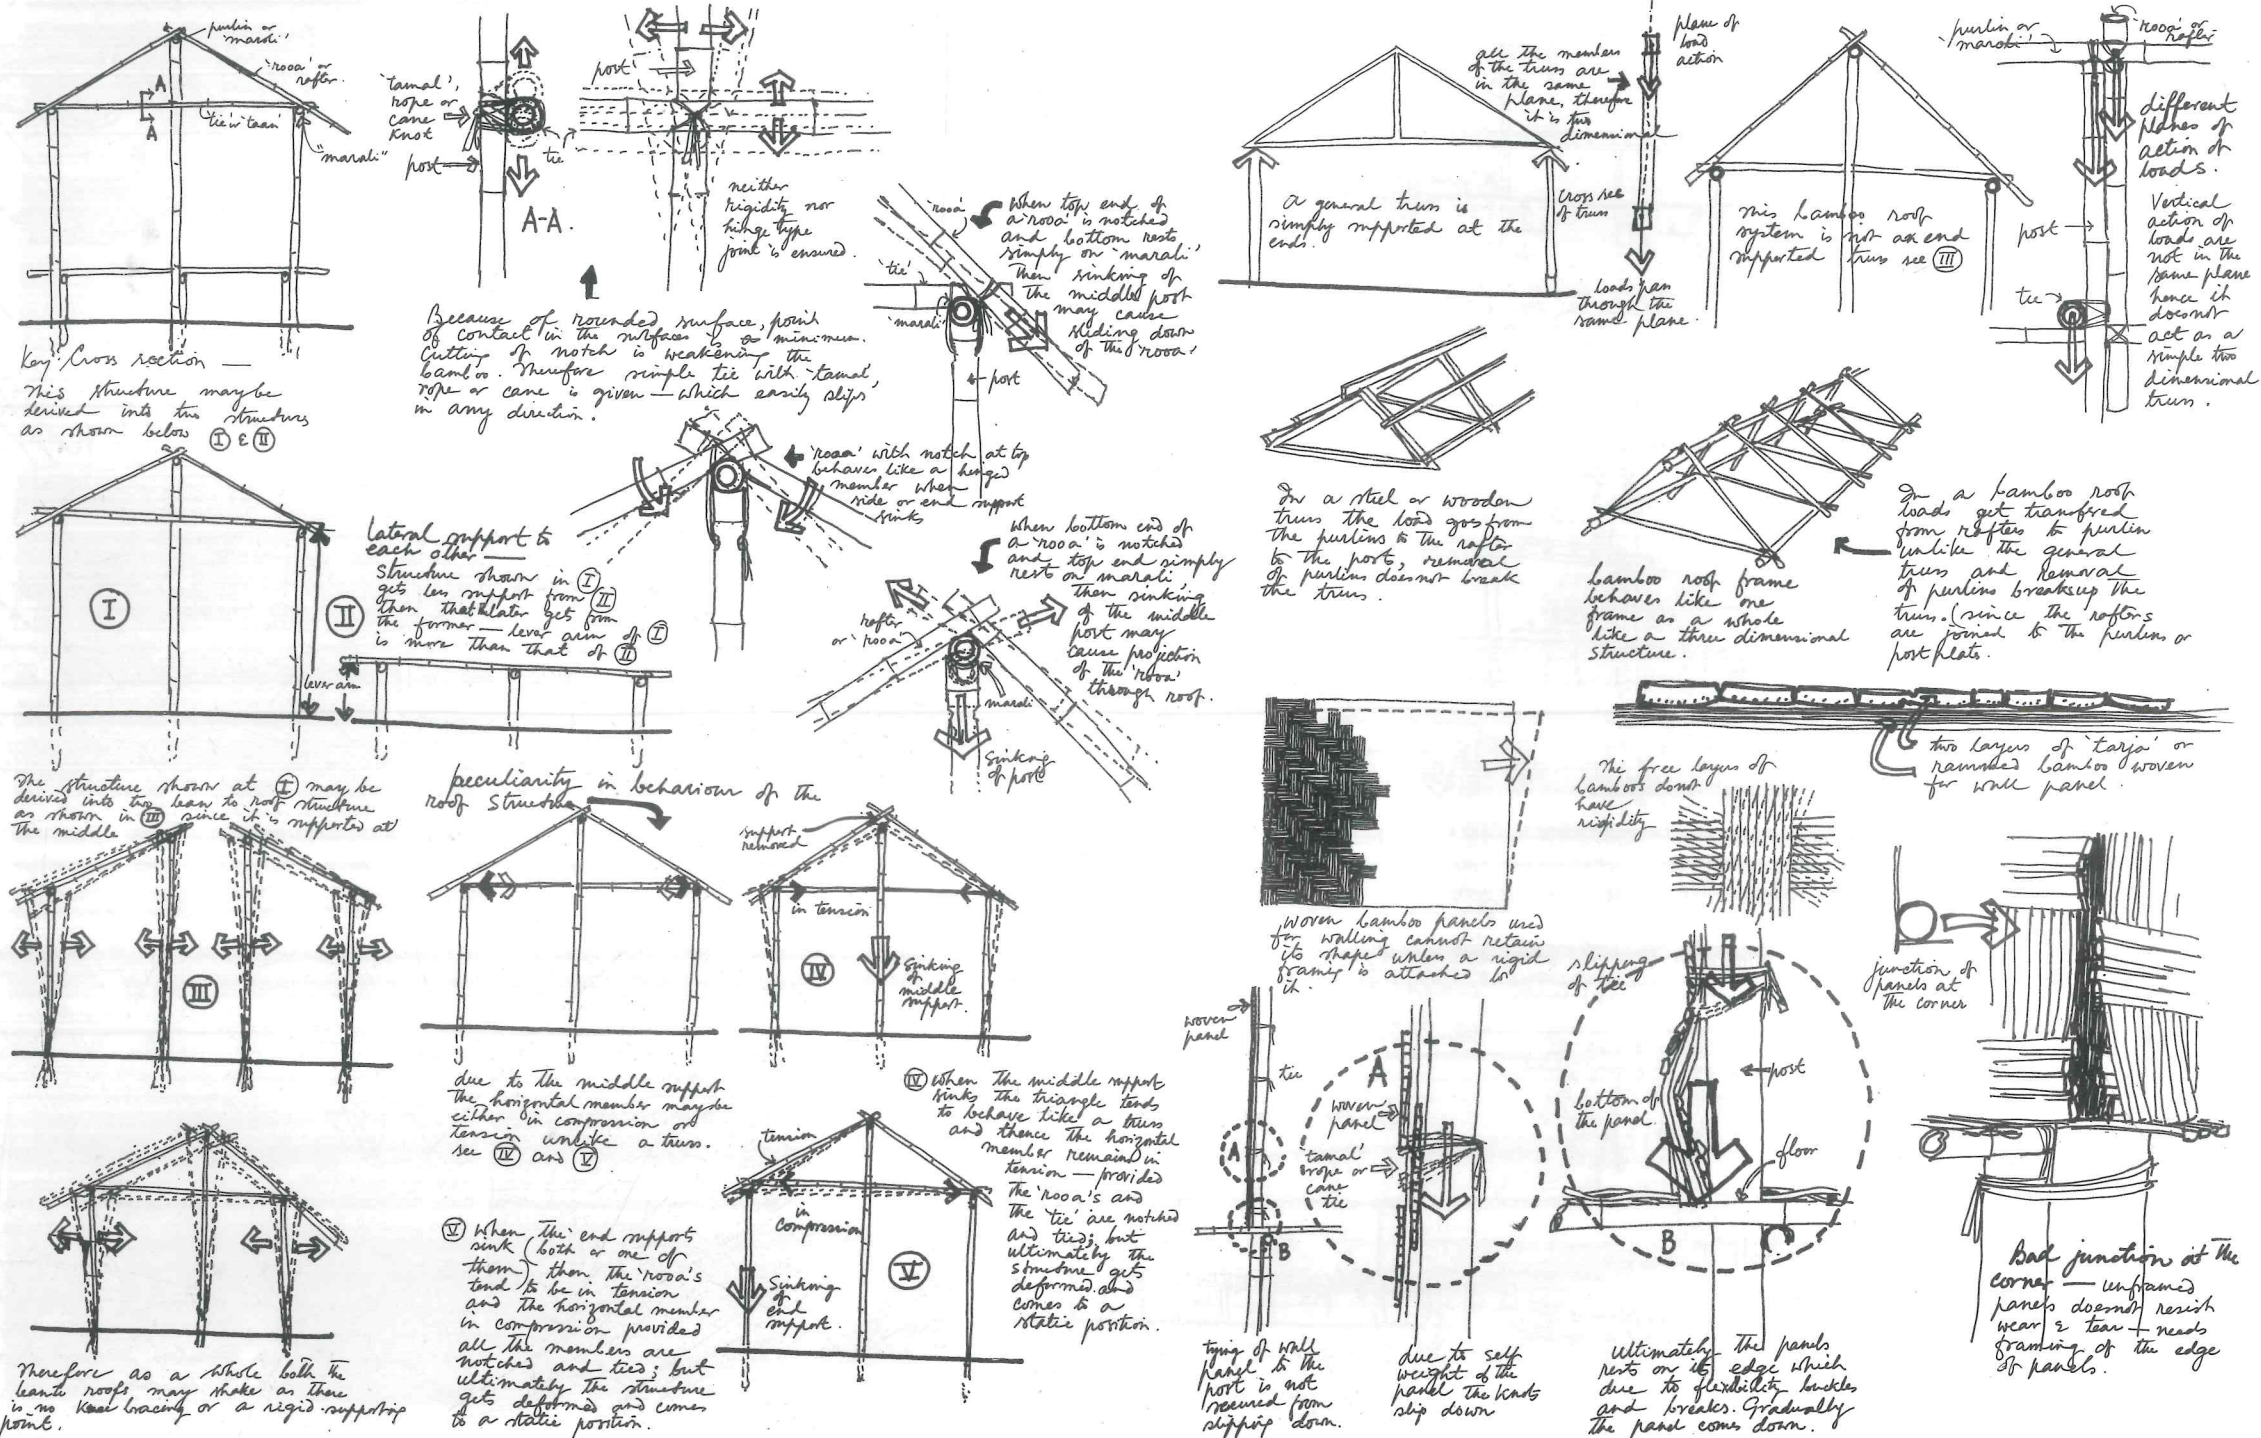 purlin or
'marali'
'rooa' or
rafter.
A
A
'tie' or 'taan'
"marali"
Key Cross section —
This structure maybe
derived into two structures
as shown below Ⓘ & Ⓘ Ⓘ
'tamal',
rope or
cane
knot
post
tie
A-A.
post
neither
rigidity nor
hinge type
joint is ensured.
Because of rounded surface, point
of contact in the surfaces is a minimum.
Cutting of notch is weakening the
bamboo. Therefore simple tie with 'tamal',
rope or cane is given — which easily slips
in any direction.
'rooa'
'tie'
'marali'
post
when top end of
a 'rooa' is notched
and bottom rests
simply on 'marali',
then sinking of
the middle post
may cause
sliding down
of the 'rooa'
'rooa' with notch at top
behaves like a hinged
member when
side or end support
sinks
when bottom end of
a 'rooa' is notched
and top end simply
rest on marali,
then sinking
of the middle
post may
cause projection
of the 'rooa'
through roof.
rafter
or 'rooa'
marali
Sinking
of post
I
II
lateral support to
each other —
Structure shown in I
gets less support from II
then that later gets from
the former — lever arm of I
is more than that of II
lever arm
The structure shown at I may be
derived into two lean to roof structure
as shown in III since it is supported at
the middle
III
Therefore as a whole both the
leanto roofs may shake as there
is no knee bracing or a rigid supporting
point.
peculiarity in behaviour of the
roof Structure
due to the middle support
the horizontal member maybe
either in compression or
tension unlike a truss.
see IV and V
support
removed
in tension
IV
Sinking
of
middle
support.
IV when the middle support
sinks the triangle tends
to behave like a truss
and thence the horizontal
member remains in
tension — provided
the 'rooa's and
the 'tie' are notched
and tied; but
ultimately the
structure gets
deformed and
comes to a
static position.
V when the end supports
sink (both or one of
them) then the 'rooa's
tend to be in tension
and the horizontal member
in compression provided
all the members are
notched and tied; but
ultimately the structure
gets deformed and comes
to a static position.
tension
in
compression
Sinking
of
end
support.
V
A general truss is
simply supported at the
ends.
all the members
of the truss are
in the same
plane, therefore
it is two
dimensional
plane of
load
action
Cross sec
of truss
loads pass
through the
same plane.
This bamboo roof
system is not an end
supported truss see III
purlin or
marali
'rooa' or
rafter
different
planes of
action of
loads.
post
tie
Vertical
action of
loads are
not in the
same plane
hence it
doesnot
act as a
simple two
dimensional
truss.
In a steel or wooden
truss the load goes from
the purlins to the rafter
to the post, removal
of purlins doesnot break
the truss.
bamboo roof frame
behaves like one
frame as a whole
like a three dimensional
structure.
In a bamboo roof
loads get transfered
from rafters to purlin
unlike the general
truss and removal
of purlins breaksup the
truss. (since the rafters
are joined to the purlins or
post plats.
woven bamboo panels used
for walling cannot retain
its shape unless a rigid
frame is attached to
it.
The free layers of
bamboos donot
have
rigidity
two layers of 'tarja' or
rammed bamboo woven
for wall panel.
woven
panel
tie
A
B
tying of wall
panel to the
post is not
secured from
slipping down.
A
woven
panel
'tamal'
rope or
cane
tie
due to self
weight of the
panel the knots
slip down
slipping
of tie
post
bottom of
the panel
floor
B
Ultimately the panels
rests on its edge which
due to flexibility buckles
and breaks. Gradually
the panel comes down.
junction of
panels at
the corner
Bad junction at the
corner — unframed
panels doesnot resist
wear & tear — needs
framing of the edge
of panels.